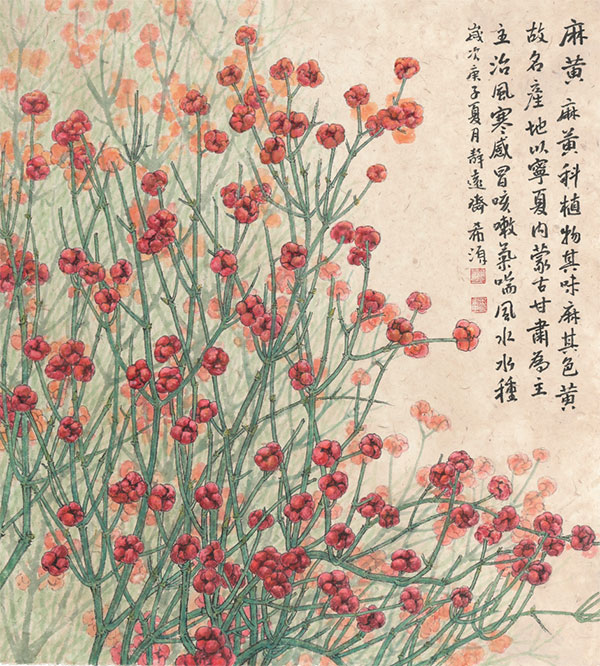 麻黄 麻黄科植物其味麻其色黄
故名產地以寧夏内蒙古甘肅為主
主治風寒感冒咳嗽氣喘風水水種
歲次庚子夏月靜遠齋希源